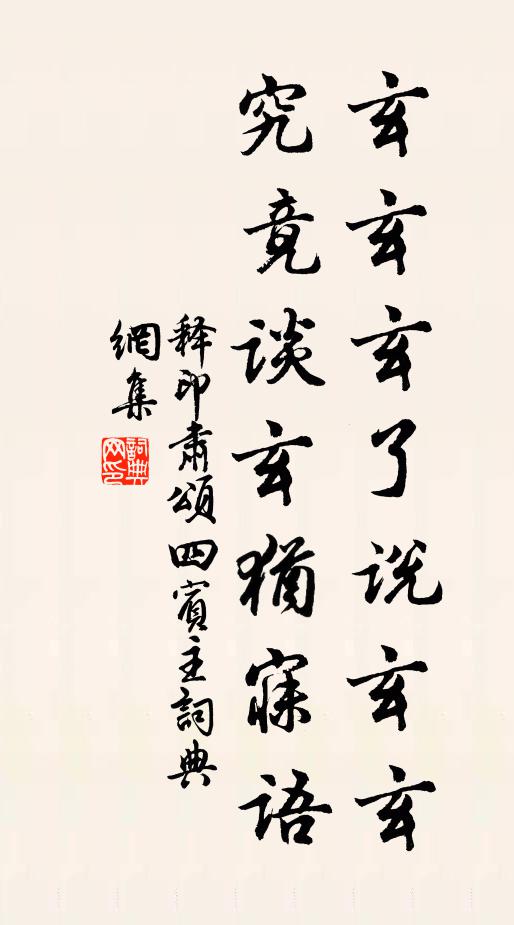 玄玄玄了说玄玄
究竟谈玄犹寐语
释印肃颂四宾主词典
網集
詞典网印